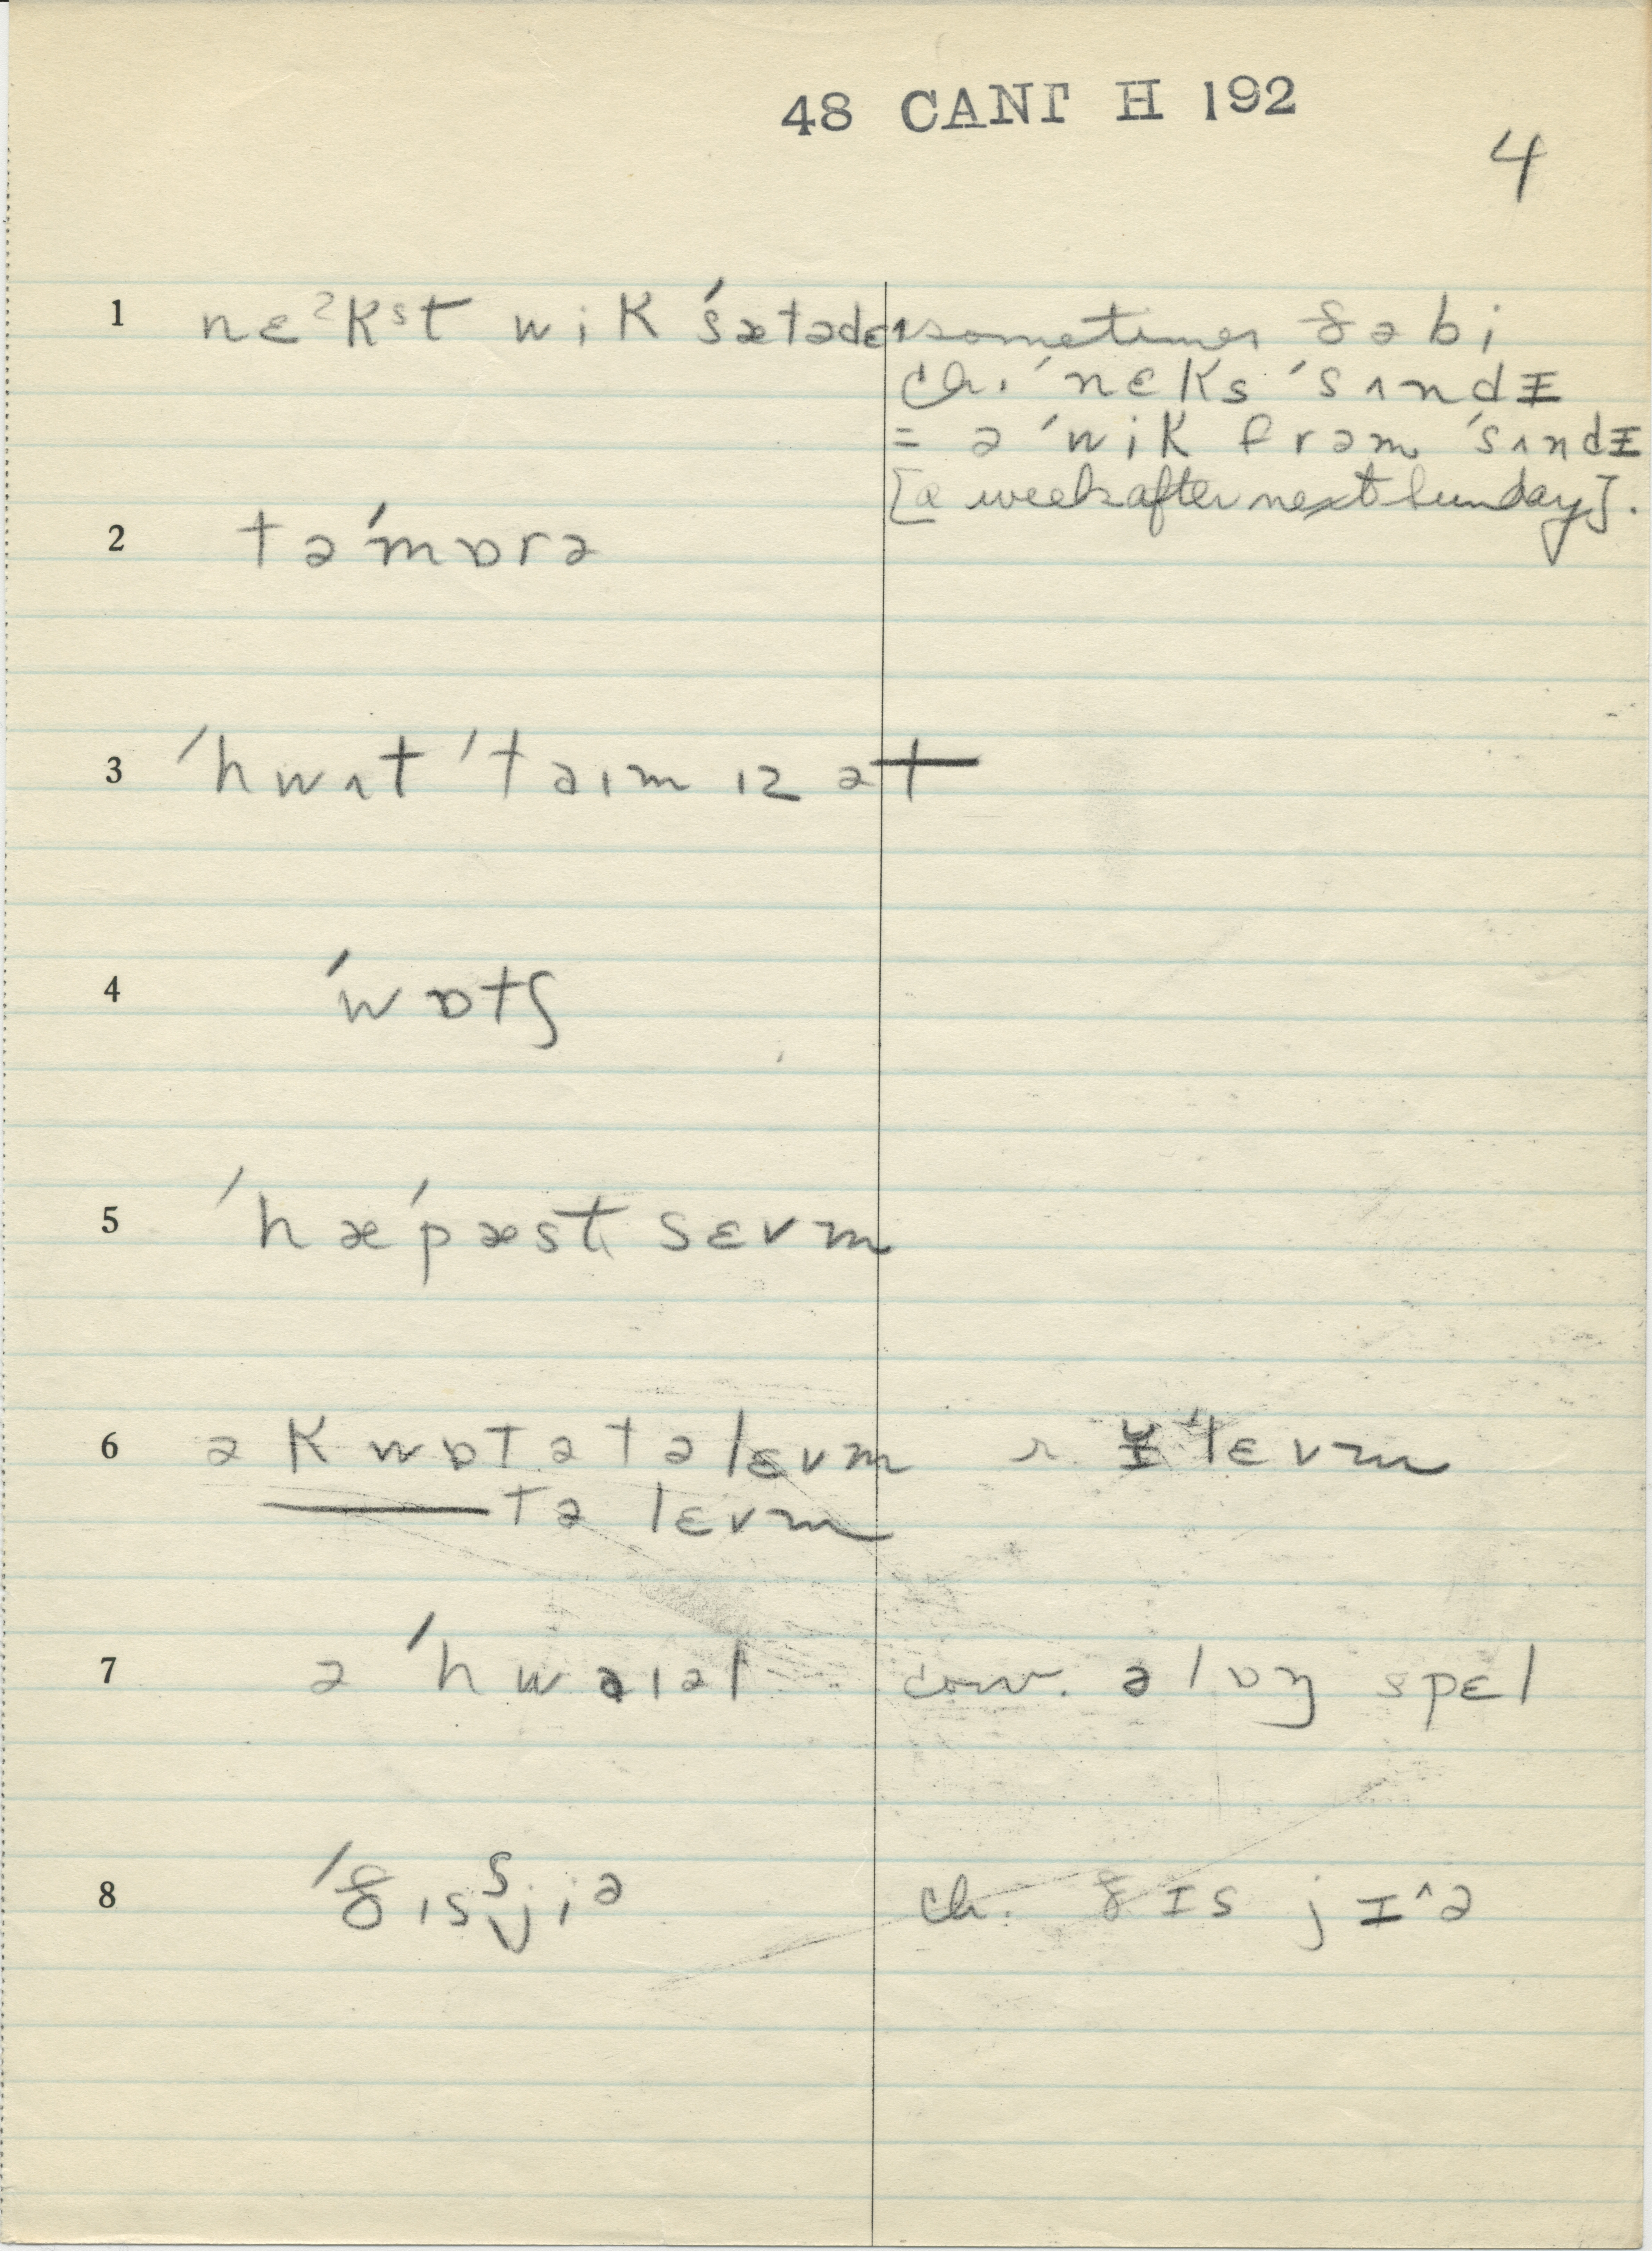 48 CANT H 192
4
1 nɛˀkˢt wik ˈsætədɛɪ sometimes ðə bi
ch. ˈnɛks ˈsʌndɪ
= ə ˈwik frəm ˈsʌndɪ
[a week after next Sunday].
2 təˈmɒrə
3 ˈhwʌt ˈtaɪm ɪz ət
4 ˈwɒtʃ
5 ˈhæˈpæst sɛvm
6 ə kwɒtətəlɛvm r. lɛvm
——tə lɛvm
7 ə ˈhwəɪəl conv. ə lɒŋ spɛl
8 ˈðɪsʃjiə ch. ðɪs jɪ^ə